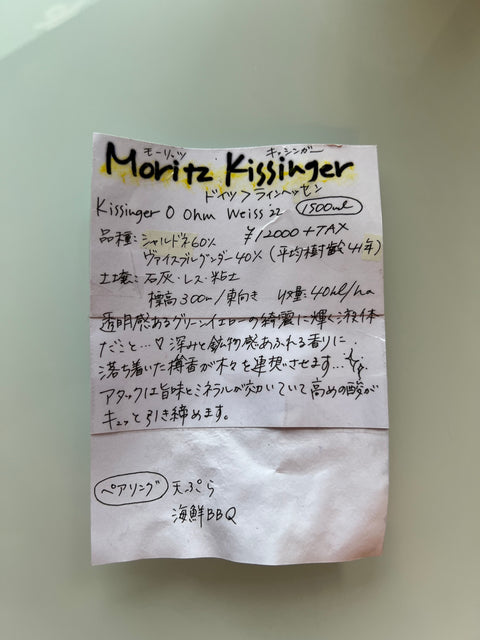 モーリッツ キッシンガー
Moritz Kissinger
ドイツ>ラインヘッセン
Kissinger O Ohm Weiss '22 1500ml
品種: シャルドネ60% ¥12000+TAX
ヴァイスブルグンダー40% (平均樹齢41年)
土壌: 石灰・レス・粘土
標高300m/東向き 収量: 40hl/ha
透明感あるグリーンイエローの綺麗に輝く液体
だこと…♡ 深みと鉱物感あふれる香りに
落ち着いた樽香が木々を連想させます…
アタックは旨味とミネラルが効いていて高めの酸が
キュッと引き締めます。
ペアリング 天ぷら
海鮮BBQ